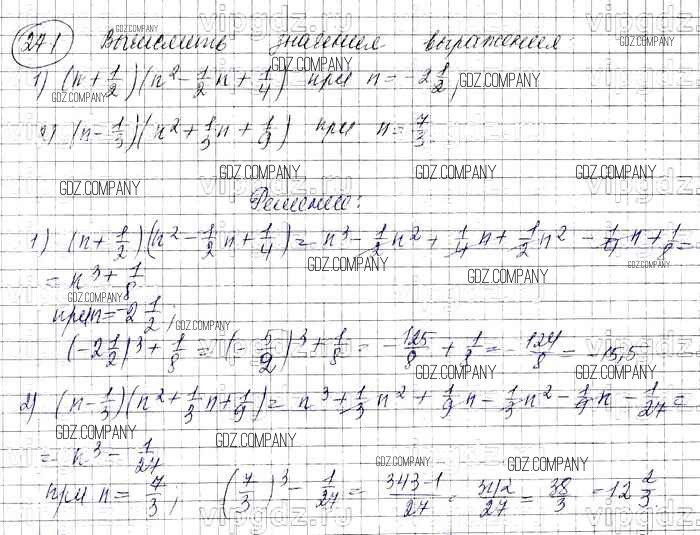 271 Вычислить значения выражения
1) (n + 1/2)(n² - 1/2 n + 1/4) при n = -2 1/2,
2) (n - 1/3)(n² + 1/3 n + 1/9) при n = 7/3.
Решение:
1) (n + 1/2)(n² - 1/2 n + 1/4) = n³ - 1/2 n² + 1/4 n + 1/2 n² - 1/4 n + 1/8 =
= n³ + 1/8
при n = -2 1/2;
(-2 1/2)³ + 1/8 = (-5/2)³ + 1/8 = -125/8 + 1/8 = -124/8 = -15,5
2) (n - 1/3)(n² + 1/3 n + 1/9) = n³ + 1/3 n² + 1/9 n - 1/3 n² - 1/9 n - 1/27 =
= n³ - 1/27
при n = 7/3; (7/3)³ - 1/27 = 343-1/27 = 342/27 = 38/3 = 12 2/3
GDZ.COMPANY
vipgdz.ru